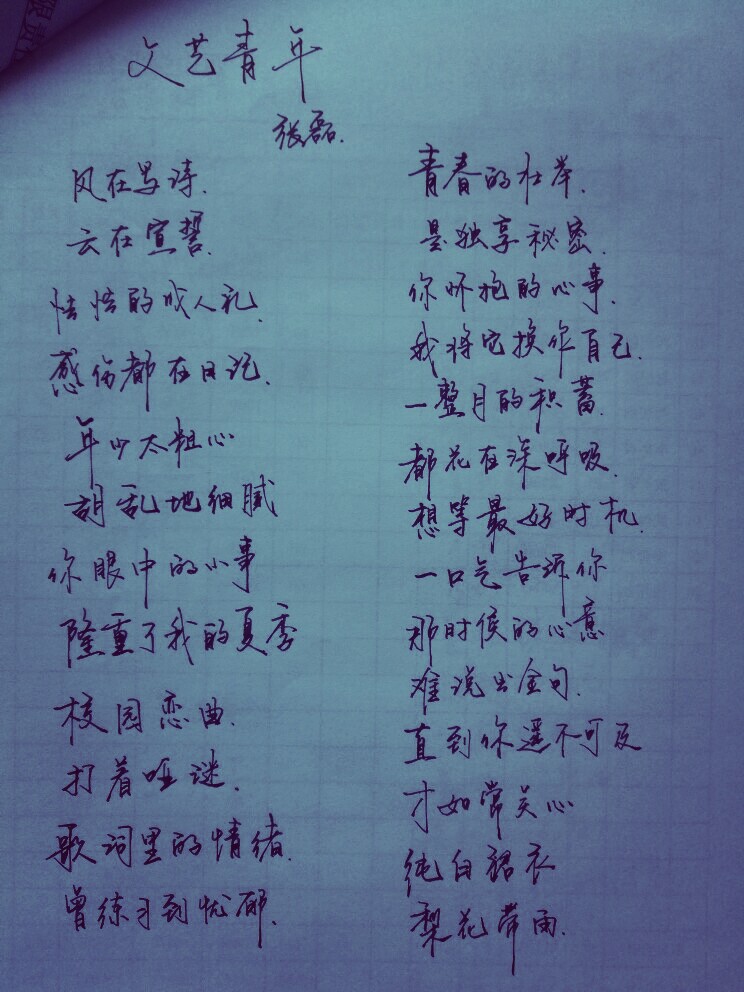 文艺青年
张磊.
风在写诗.
云在宣誓.
怯怯的成人礼.
感伤都在日记.
年少太粗心
胡乱地细腻
你眼中的小事
隆重了我的夏季
校园恋曲.
打着哑谜.
歌词里的情绪.
曾练习到忧郁.
青春的壮举.
是独享秘密.
你怀抱的心事.
我将它换作自己.
一整月的积蓄.
都花在深呼吸.
想等最好时机.
一口气告诉你
那时候的心意
难说出金句.
直到你遥不可及
才如常关心
纯白裙衣
梨花带雨.